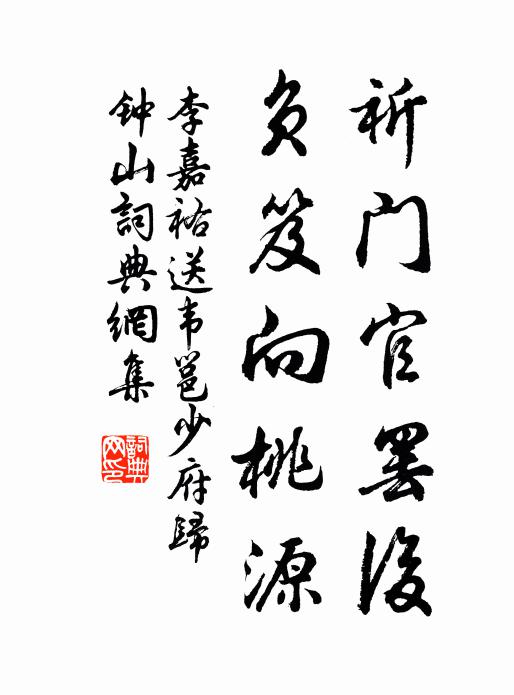 祈门官罢后
负笈向桃源
李嘉祐送韦邕少府歸
钟山詞典網集
詞典网印